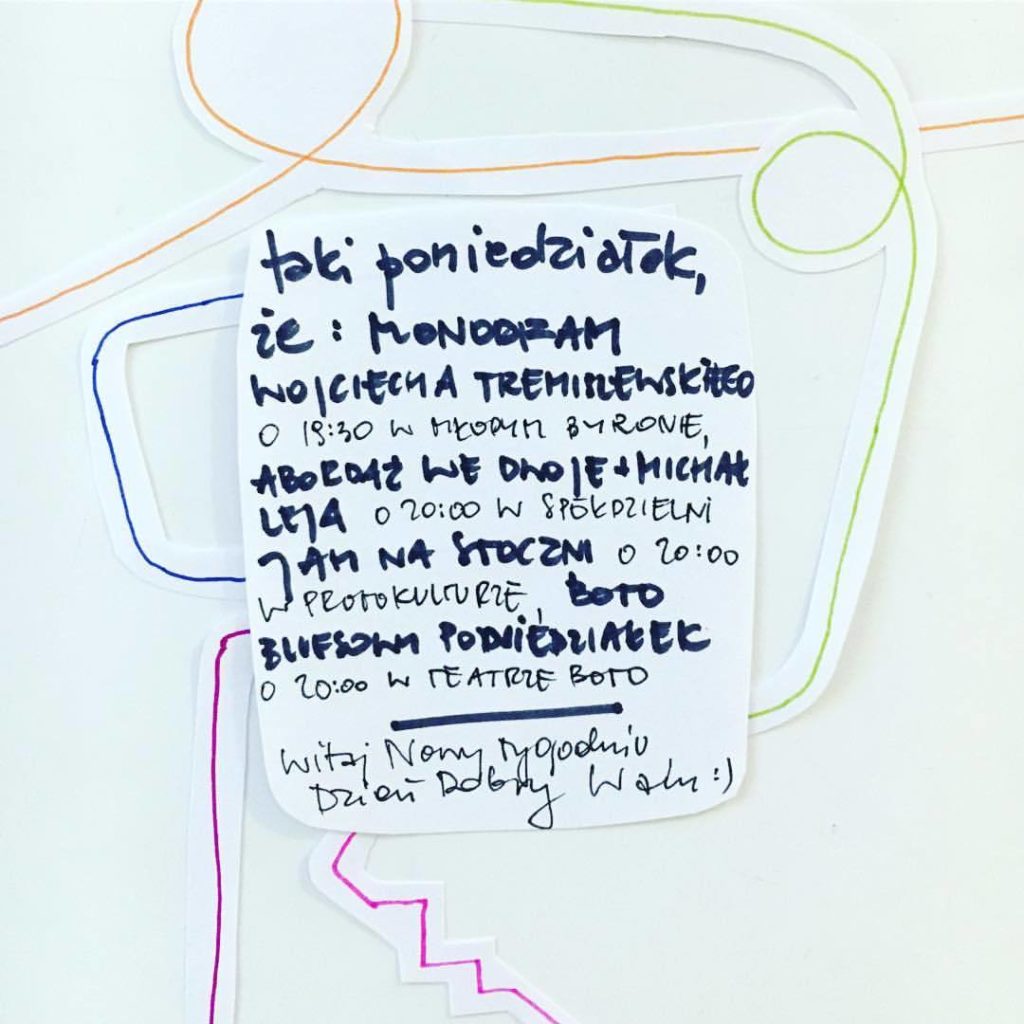 taki poniedziałek,
że : MONODRAM
WOJCIECHA TREMISZEWSKIEGO
O 19:30 W MŁODYM BYRONIE,
ABORDAŻ WE DWOJE + MICHAŁ
LEJA O 20:00 W SPÓŁDZIELNI
JAM NA STOCZNI O 20:00
W PROTOKULTURZE, BOTO
BLUESOWY PONIEDZIAŁEK
O 20:00 W TEATRZE BOTO
Witaj Nowy tygodniu
Dzień Dobry Wam :)